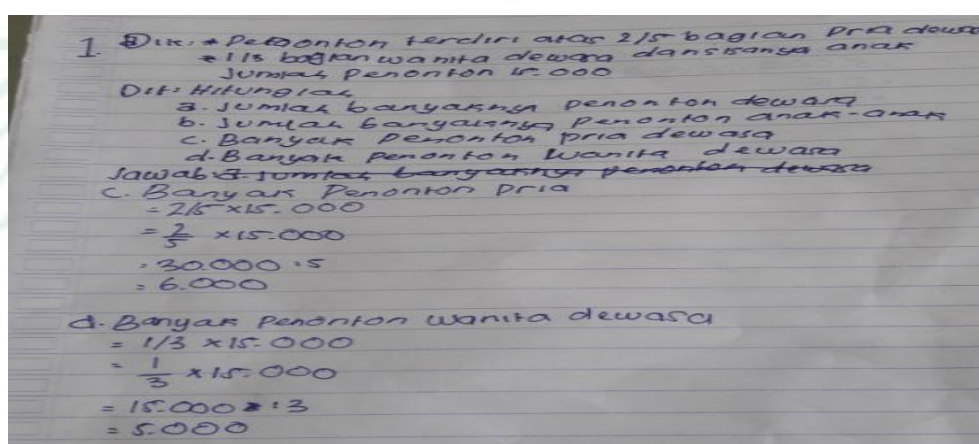 1. Dik: * Penonton terdiri atas 2/5 bagian pria dewasa
* 1/3 bagian wanita dewasa dan sisanya anak
Jumlah penonton 15.000
Dit: Hitunglah
a. Jumlah banyaknya penonton dewasa
b. Jumlah banyaknya penonton anak-anak
c. Banyak penonton pria dewasa
d. Banyak penonton wanita dewasa
Jawab a. Jumlah banyaknya penonton dewasa
c. Banyak Penonton pria
= 2/5 x 15.000
= 2/5 x 15.000
= 30.000 : 5
= 6.000
d. Banyak Penonton wanita dewasa
= 1/3 x 15.000
= 1/3 x 15.000
= 15.000 : 3
= 5.000